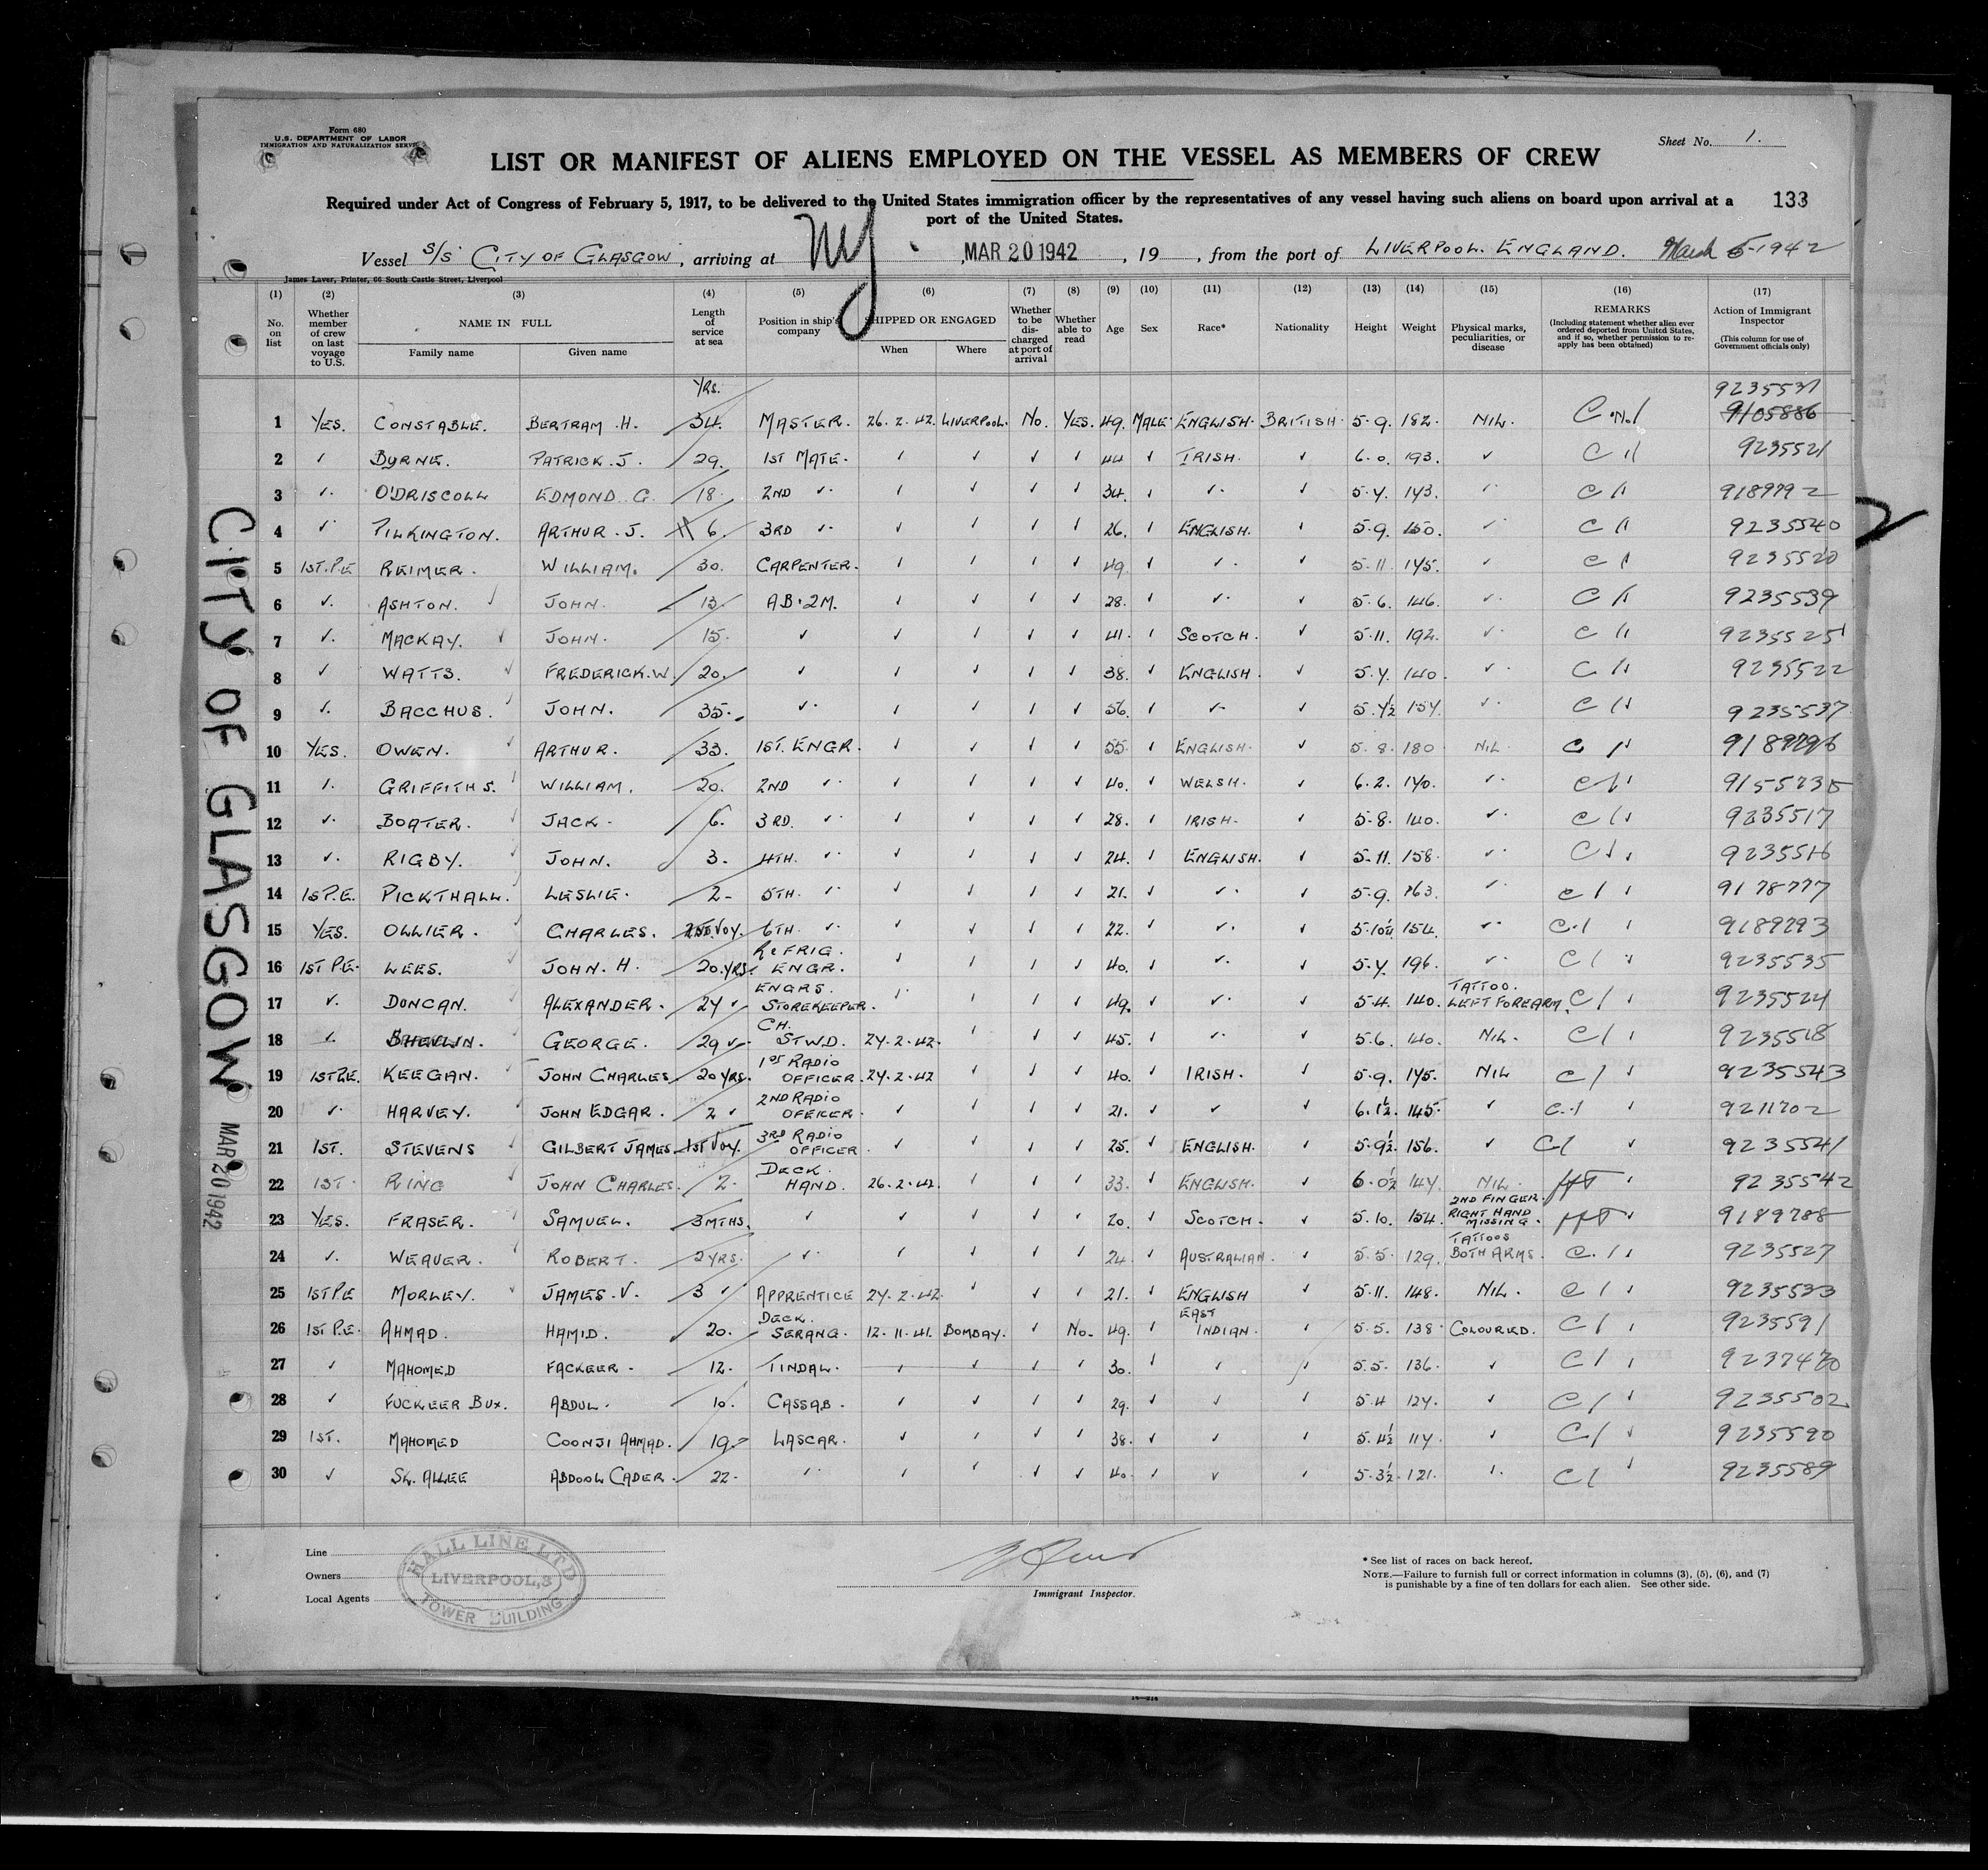 Form 680
U.S. DEPARTMENT OF LABOR
IMMIGRATION AND NATURALIZATION SERVICE
Sheet No. 1.
LIST OR MANIFEST OF ALIENS EMPLOYED ON THE VESSEL AS MEMBERS OF CREW
Required under Act of Congress of February 5, 1917, to be delivered to the United States immigration officer by the representatives of any vessel having such aliens on board upon arrival at a
port of the United States.
133
Vessel S/S CITY OF GLASGOW, arriving at NY, MAR 20 1942, 19 , from the port of LIVERPOOL. ENGLAND. March 5-1942
James Laver, Printer, 66 South Castle Street, Liverpool
(1) (2) (3) (4) (5) (6) (7) (8) (9) (10) (11) (12) (13) (14) (15) (16) (17)
No. on list
Whether member of crew on last voyage to U.S.
NAME IN FULL
Family name Given name
Length of service at sea
Position in ship's company
SHIPPED OR ENGAGED
When Where
Whether to be discharged at port of arrival
Whether able to read
Age Sex Race* Nationality Height Weight
Physical marks, peculiarities, or disease
REMARKS
(Including statement whether alien ever ordered deported from United States, and if so, whether permission to reapply has been obtained)
Action of Immigrant Inspector
(This column for use of Government officials only)
YRS. 9235531
1 YES. CONSTABLE. BERTRAM. H. 34. MASTER. 26.2.42. LIVERPOOL. NO. YES. 49. MALE ENGLISH. BRITISH. 5.9. 182. NIL. 9105886
2 ✓ BYRNE. PATRICK. J. 29. 1ST MATE. ✓ ✓ ✓ ✓ 44 ✓ IRISH. 6.0. 193. ✓ 9235521
3 ✓ O'DRISCOLL EDMOND. G. 18. 2ND ✓ ✓ ✓ ✓ ✓ 34. ✓ ✓ ✓ 5.7. 143. ✓ 9189792
4 ✓ PILKINGTON. ARTHUR. J. 6. 3RD ✓ ✓ ✓ ✓ ✓ 26. ✓ ENGLISH. ✓ 5.9. 150. ✓ 9235540
5 1ST.P.E REIMER. WILLIAM. 30. CARPENTER. ✓ ✓ ✓ ✓ 49. ✓ ✓ ✓ 5.11. 175. ✓ 9235520
6 ✓ ASHTON. JOHN. 13. AB.2M. ✓ ✓ ✓ ✓ 28. ✓ ✓ ✓ 5.6. 146. ✓ 9235539
7 ✓ MACKAY. JOHN. 15. ✓ ✓ ✓ ✓ ✓ 41. ✓ SCOTCH. ✓ 5.11. 192. ✓ 9235525
8 ✓ WATTS. FREDERICK.W. 20. ✓ ✓ ✓ ✓ ✓ 38. ✓ ENGLISH. ✓ 5.7. 140. ✓ 9235522
9 ✓ BACCHUS. JOHN. 35. ✓ ✓ ✓ ✓ ✓ 56. ✓ ✓ ✓ 5.7½ 157. ✓ 9235537
10 YES. OWEN. ARTHUR. 33. 1ST. ENGR. ✓ ✓ ✓ ✓ 55. ✓ ENGLISH. ✓ 5.8. 180 NIL. 9189796
11 ✓ GRIFFITHS. WILLIAM. 20. 2ND ✓ ✓ ✓ ✓ ✓ 40. ✓ WELSH. ✓ 6.2. 170. ✓ 9155735
12 ✓ BOATER. JACK. 6. 3RD. ✓ ✓ ✓ ✓ ✓ 28. ✓ IRISH. ✓ 5.8. 140. ✓ 9235517
13 ✓ RIGBY. JOHN. 3. 4TH. ✓ ✓ ✓ ✓ ✓ 24. ✓ ENGLISH. ✓ 5.11. 158. ✓ 9235516
14 1ST P.E. PICKTHALL. LESLIE. 2 5TH. ✓ ✓ ✓ ✓ ✓ 21. ✓ ✓ ✓ 5.9. 163. ✓ 9178777
15 YES. OLLIER. CHARLES. VOY. 6TH. ✓ ✓ ✓ ✓ ✓ 22. ✓ ✓ ✓ 5.10½ 154. ✓ 9189793
16 1ST P.E. LEES. JOHN. H. 20.YRS. REFRIG. ENGR. ✓ ✓ ✓ ✓ 40. ✓ ✓ ✓ 5.7. 196. ✓ 9235535
17 ✓ DUNCAN. ALEXANDER. 27 ✓ ENGRS. STOREKEEPER. ✓ ✓ ✓ ✓ 49. ✓ ✓ ✓ 5.4. 140. TATTOO. LEFT FOREARM. 9235524
18 ✓ GEORGE. 29 ✓ CH. STWD. 27.2.42. ✓ ✓ ✓ 45. ✓ ✓ ✓ 5.6. 140. NIL. 9235518
19 1ST P.E. KEEGAN. JOHN CHARLES 20 YRS. 1ST RADIO OFFICER. 27.2.42 ✓ ✓ ✓ 40. ✓ IRISH. ✓ 5.9. 175. NIL 9235543
20 ✓ HARVEY. JOHN EDGAR. 2 ✓ 2ND RADIO OFFICER. ✓ ✓ ✓ ✓ 21. ✓ ✓ ✓ 6.1½. 145. ✓ 9211702
21 1ST. STEVENS GILBERT JAMES. 1ST VOY. 3RD RADIO OFFICER ✓ ✓ ✓ ✓ 25. ✓ ENGLISH. ✓ 5.9½. 156. ✓ 9235541
22 1ST. RING JOHN CHARLES. 2. DECK HAND. 26.2.42. ✓ ✓ ✓ 33. ✓ ENGLISH. ✓ 6.0½ 147. NIL. 9235542
23 YES. FRASER. SAMUEL. 3 MTHS. ✓ ✓ ✓ ✓ ✓ 20. ✓ SCOTCH. ✓ 5.10. 154. 2ND FINGER. RIGHT HAND MISSING. 9189788
24 ✓ WEAVER. ROBERT. 2 YRS. ✓ ✓ ✓ ✓ ✓ 24. ✓ AUSTRALIAN. ✓ 5.5. 129. TATTOOS BOTH ARMS. 9235527
25 1ST P.E MORLEY. JAMES. V. 3 ✓ APPRENTICE 27.2.42. ✓ ✓ ✓ 21. ✓ ENGLISH ✓ 5.11. 148. NIL. 9235533
26 1ST P.E. AHMAD. HAMID. 20. DECK. SERANG. 12.11.41. BOMBAY. ✓ NO. 49. ✓ EAST INDIAN. ✓ 5.5. 138 COLOURED. 9235591
27 ✓ MAHOMED FACKEER. 12. TINDAL. ✓ ✓ ✓ ✓ 30. ✓ ✓ ✓ 5.5. 136. ✓ 9237470
28 ✓ FUCKEER BUX. ABDUL. 10. CASSAB. ✓ ✓ ✓ ✓ 29. ✓ ✓ ✓ 5.4 127. ✓ 9235502
29 1ST. MAHOMED COONJI AHMAD. 19. LASCAR. ✓ ✓ ✓ ✓ 38. ✓ ✓ ✓ 5.4½ 117. ✓ 9235590
30 ✓ SK. ALLEE ABDOOL CADER. 22. ✓ ✓ ✓ ✓ ✓ 40. ✓ ✓ ✓ 5.3½. 121. ✓ 9235589
CITY OF GLASGOW MAR 20 1942
Line
Owners
Local Agents
HALL LINE LTD
LIVERPOOL,3
TOWER BUILDING
Immigrant Inspector.
* See list of races on back hereof.
NOTE.—Failure to furnish full or correct information in columns (3), (5), (6), and (7)
is punishable by a fine of ten dollars for each alien. See other side.